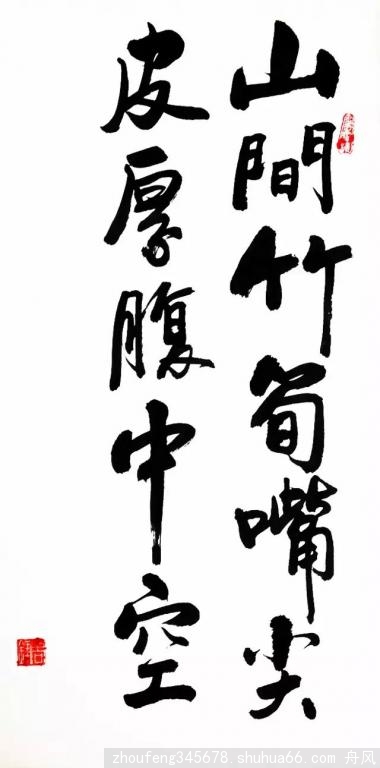 山間竹筍嘴尖
皮厚腹中空
zhoufeng345678.shuhua66.com 舟风